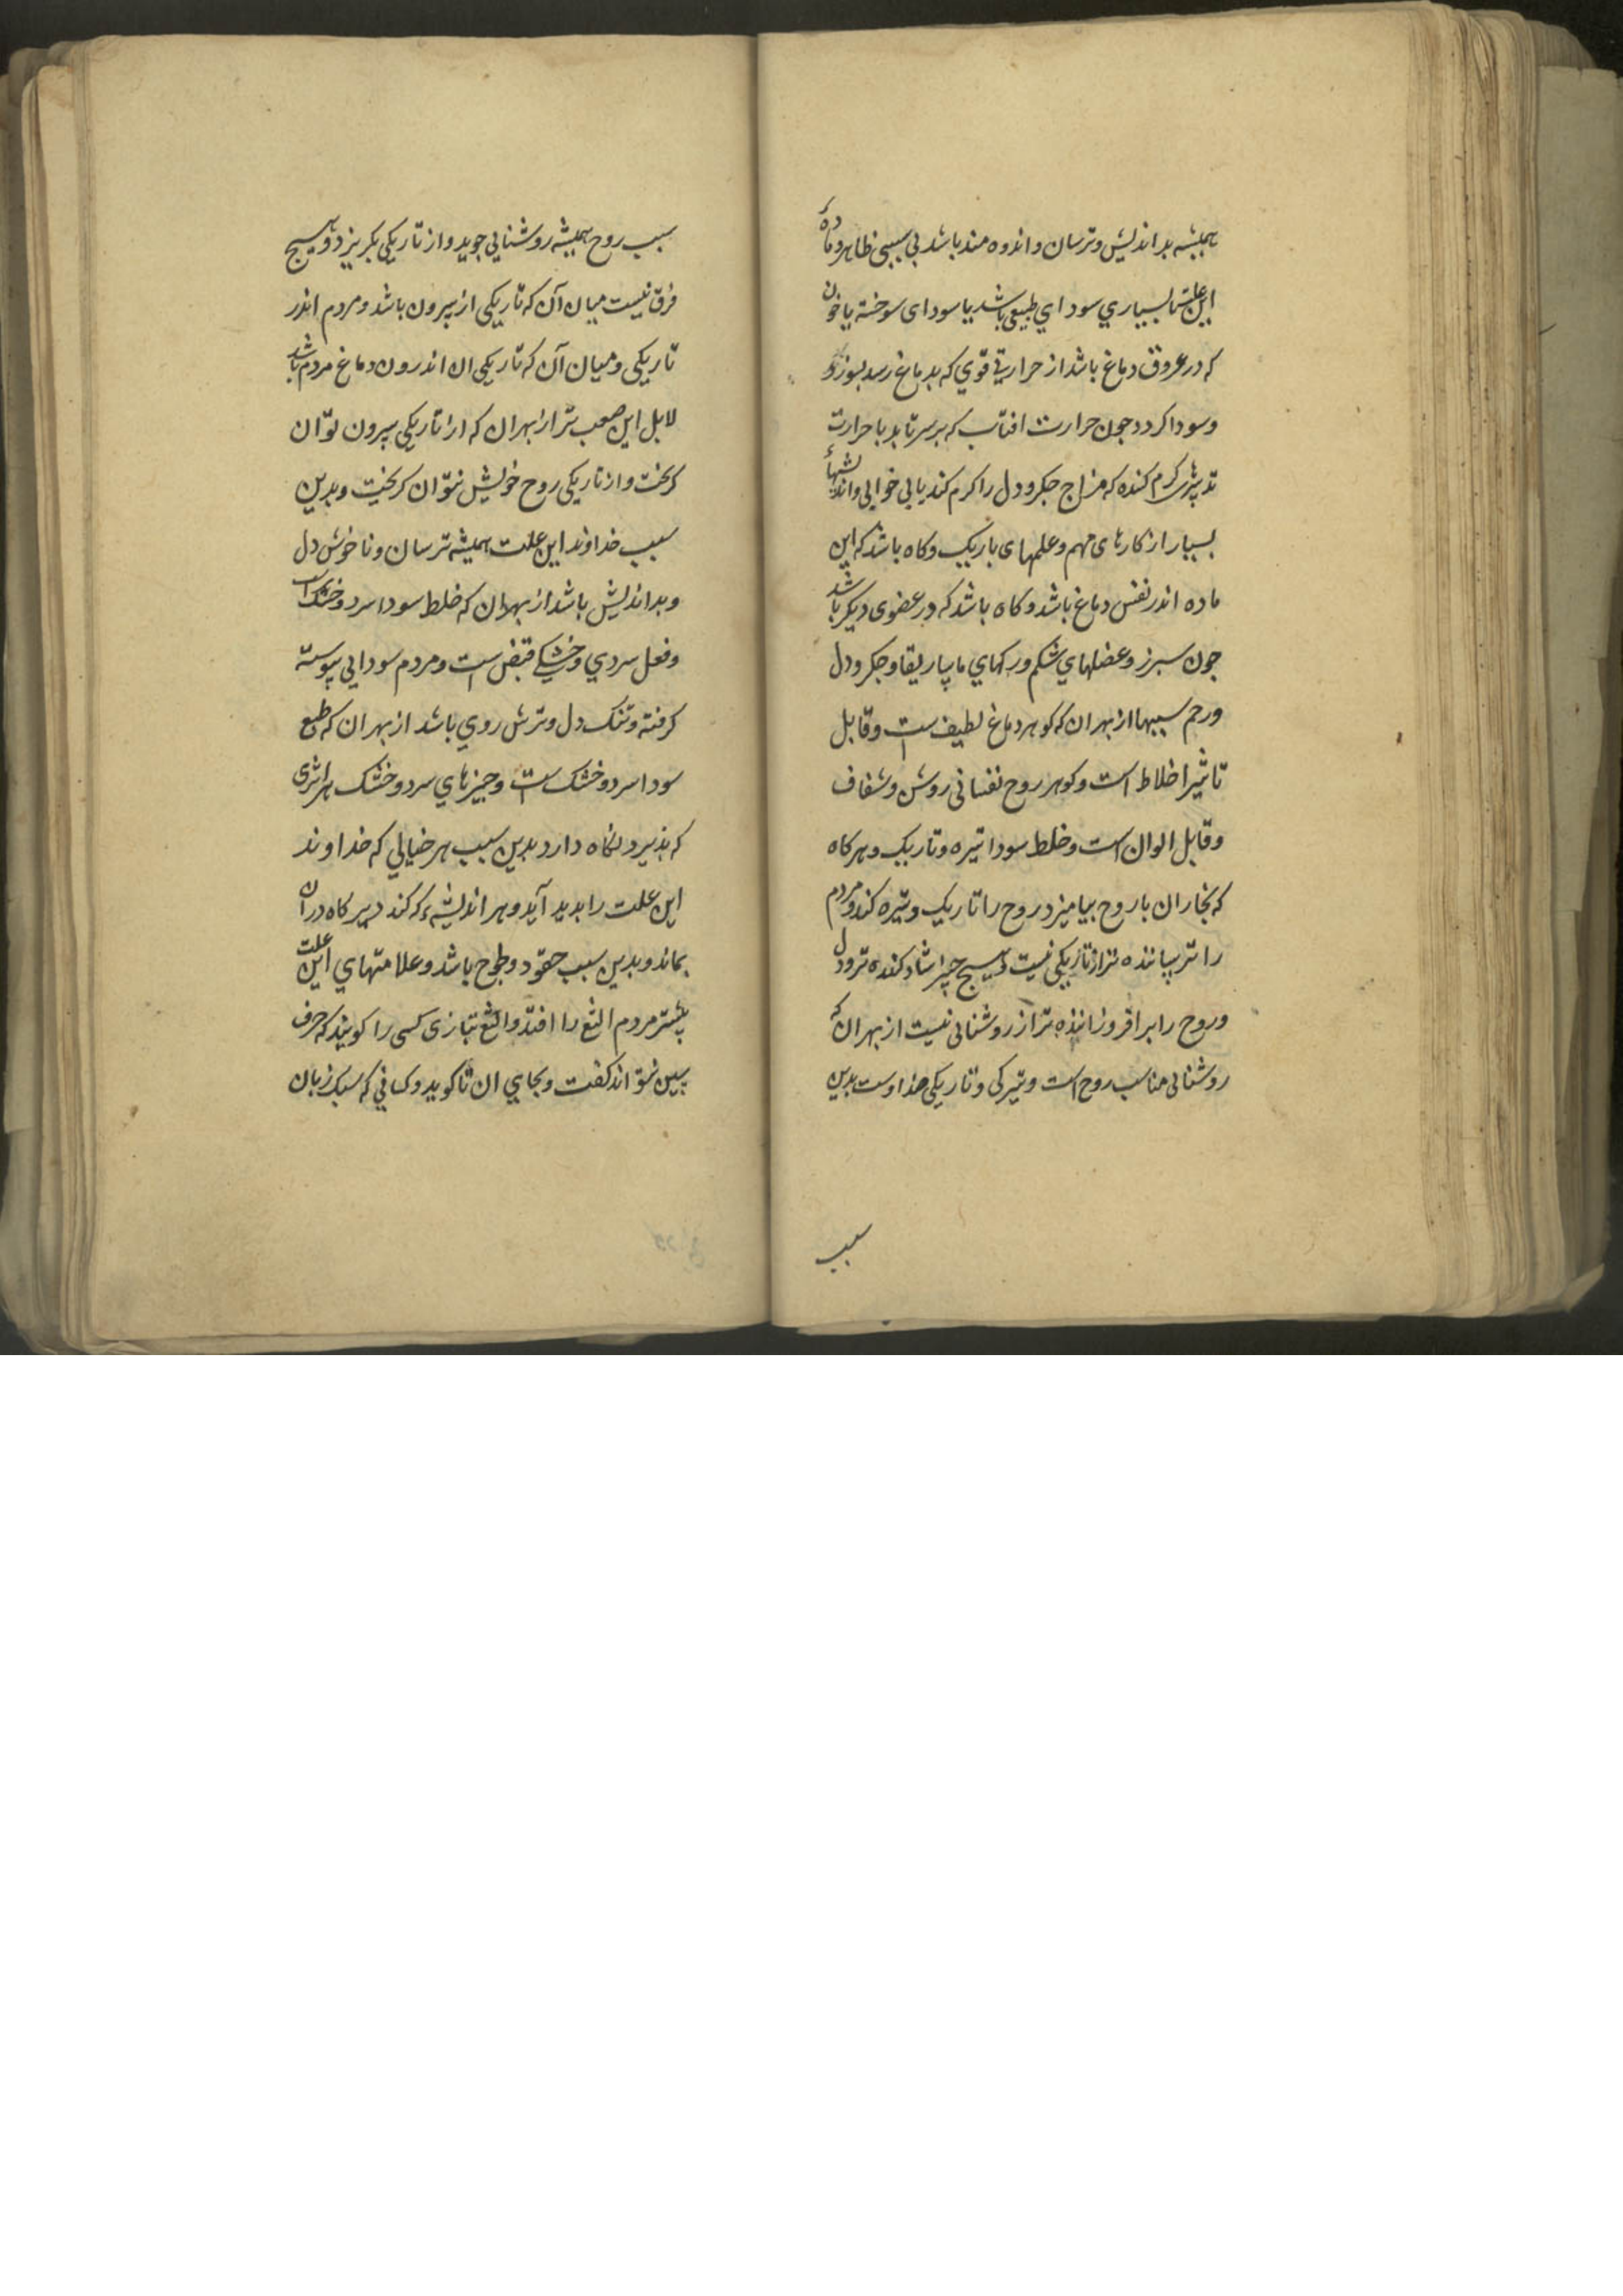 همیشه بد اندیش و ترسان و اندوه مند باشد بی سببی ظاهر و مادهٔ
این علت بسیاری سودای طبیعی باشد یا سودای سوخته یا خون
که در عروق دماغ باشد از حرارتی قوی که بدماغ رسد بسوزد
و سودا کردد جون حرارت افتاب که بر سر تابد یا حرارت
تدبیرهای کرم کننده که مزاج جکر و دل را کرم کند یا بی خوابی و اندیشهاء
بسیار از کارهای مهم و علمهای باریک و کاه باشد که این
ماده اندر نفس دماغ باشد و کاه باشد که در عضوی دیکر باشد
جون سبرز و عضلهای شکم و رکهای ماساریقا و جکر و دل
و رحم سیبها از بهر ان که کوهر دماغ لطیف است و قابل
تاثیر اخلاط است و کوهر روح نفسانی روشن و شفاف
و قابل الوان است و خلط سودا تیره و تاریک و هرکاه
که بخار ان با روح بیامیزد روح را تاریک و تیره کند و مردم
را ترساننده تر از تاریکی نیست و هیسج چیز شاد کننده تر و دل
و روح را بر افروزاننده تر از روشنائی نیست از بهر ان که
روشنائی مناسب روح است و تیرکی و تاریکی ضد اوست بدین
سبب
سبب روح همیشه روشنایی جوید و از تاریکی بکریزد و هیسج
فرق نیست میان آن که تاریکی از بیرون باشد و مردم اندر
تاریکی و میان آن که تاریکی ان اندرون دماغ مردم باشد
لابل این صعب تر از بهر ان که از تاریکی بیرون توان
کریخت و از تاریکی روح خویش نتوان کریخت و بدین
سبب خداوند این علت همیشه ترسان و ناخوش دل
و بد اندیش باشد از بهر ان که خلط سودا سرد و خشک است
و فعل سردی و خشکی قبض است و مردم سودایی پیوسته
کرفته و تنک دل و ترش روی باشد از بهر ان که طبع
سودا سرد و خشک است و جیزهای سرد و خشک هر اثری
که بذیرد نکاه دارد بدین سبب هر خیالی که خداوند
این علت را بدید آید و هر اندیشهٔ که کند دیر کاه در ان
بماند و بدین سبب حقود و طوح باشد و علامتهای این علت
بیشتر مردم الثغ را افتد و الثغ بتازی کسی را کویند که حرف
سین نتواند کفت و بجای ان ثا کوید و کسانی که سبک زبان